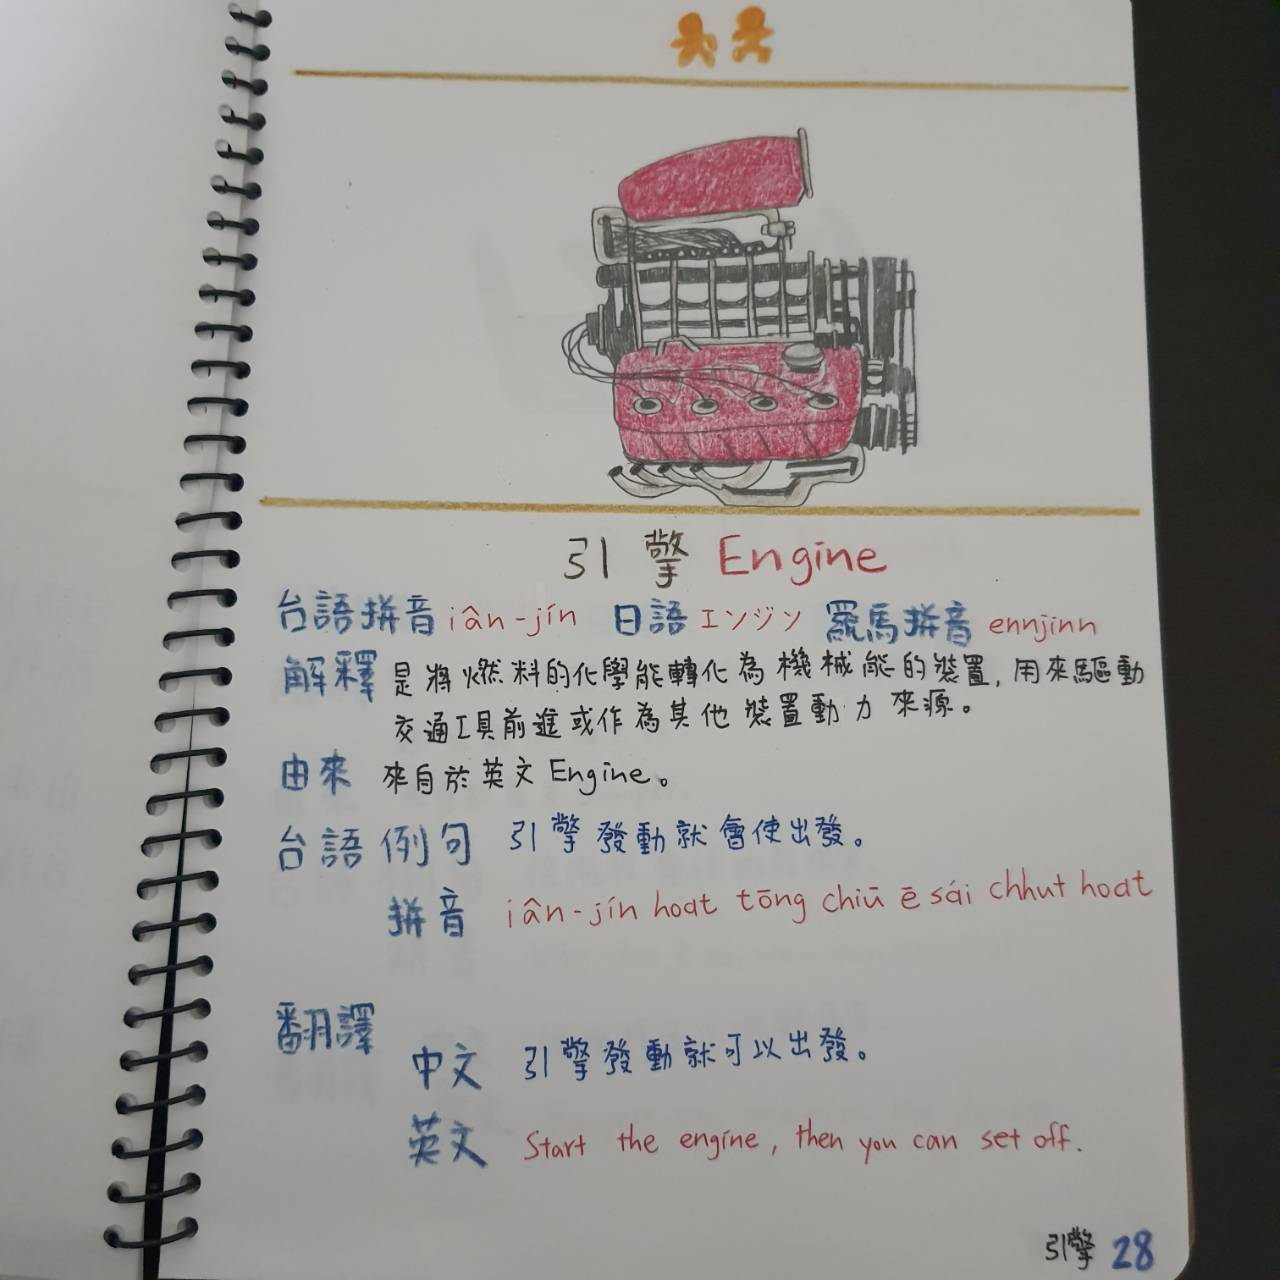 引擎 Engine
台語拼音 iân-jín 日語 エンジン 羅馬拼音 ennjinn
解釋 是將燃料的化學能轉化為機械能的裝置,用來驅動
交通工具前進或作為其他裝置動力來源。
由來 來自於英文 Engine。
台語例句 引擎發動就會使出發。
拼音 iân-jín hoat tōng chiū ē sái chhut hoat
翻譯
中文 引擎發動就可以出發。
英文 Start the engine, then you can set off.
引擎 28